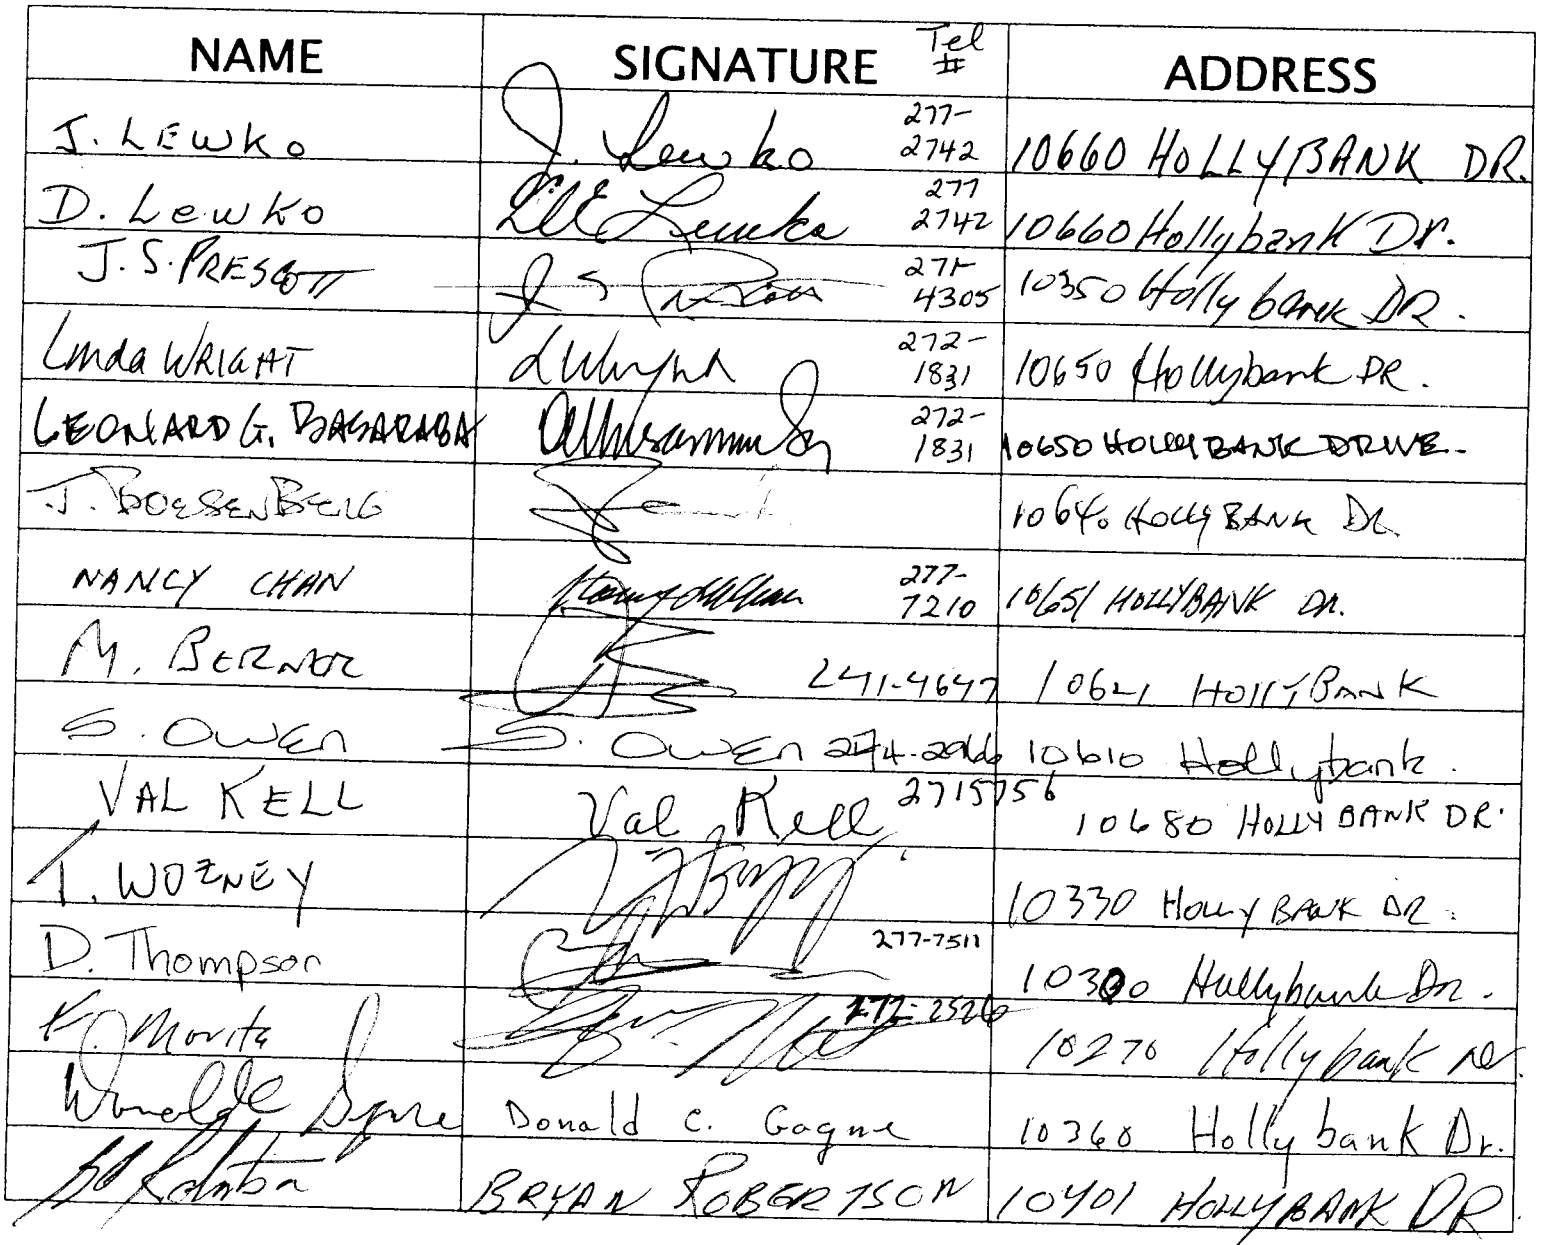 NAME SIGNATURE Tel # ADDRESS
J. LEWKO J. Lewko 277-2742 10660 HOLLYBANK DR.
D. LEWKO Lewko 277 2742 10660 Hollybank Dr.
J.S. PRESCOTT J S Prescott 271-4305 10350 Hollybank DR.
Linda WRIGHT 272-1831 10650 Hollybank DR.
LEONARD G. BASARABA 272-1831 10650 HOLLYBANK DRIVE.
J. BOESENBERG 10640 HOLLYBANK DR.
NANCY CHAN 277-7210 10651 HOLLYBANK DR.
M. BERNER 241-4647 10621 HOLLYBANK
S. OWEN S. OWEN 274-2966 10610 Hollybank.
VAL KELL Val Kell 2715756 10680 HOLLYBANK DR.
T. WOZNEY 10330 HOLLYBANK DR.
D. Thompson 277-7511 10300 Hollybank Dr.
K. Morita 272-2526 10270 Hollybank Dr.
Donald C. Gagne 10360 Hollybank Dr.
BRYAN ROBERTSON 10401 HOLLYBANK DR